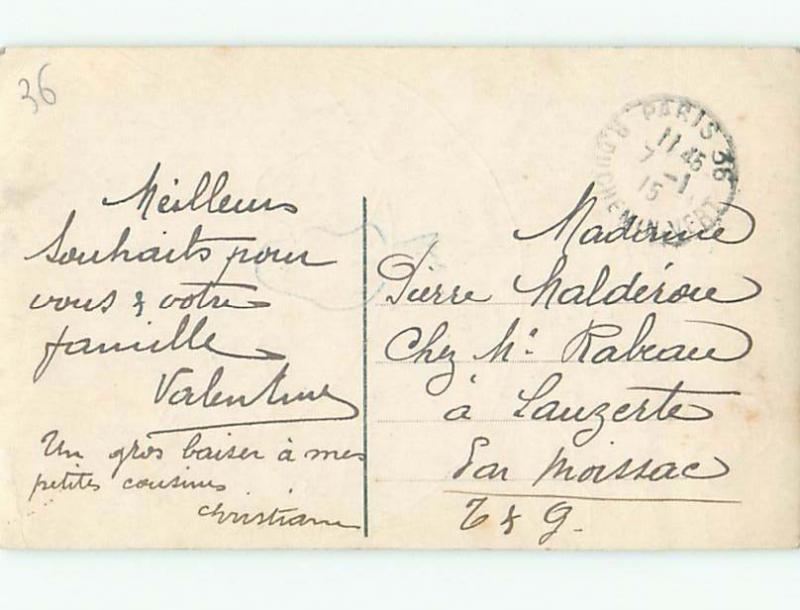 36
Meilleurs
Souhaits pour
vous & votre
famille
Valentine
Un gros baiser à mes
petites cousines
Christiane
PARIS 36
11 45
7 - 1
15
R. DU CHEMIN VERT
Madame
Pierre Maldérou
Chez Mr. Rabeau
à Lauzerte
Par Moissac
T & G.